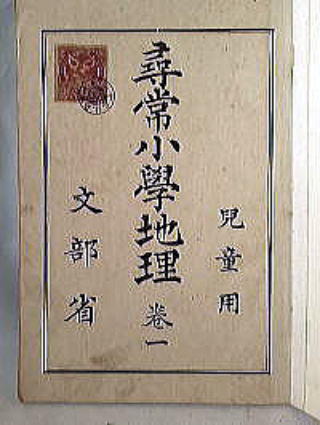 兒童用
尋常小學地理 卷一
文部省